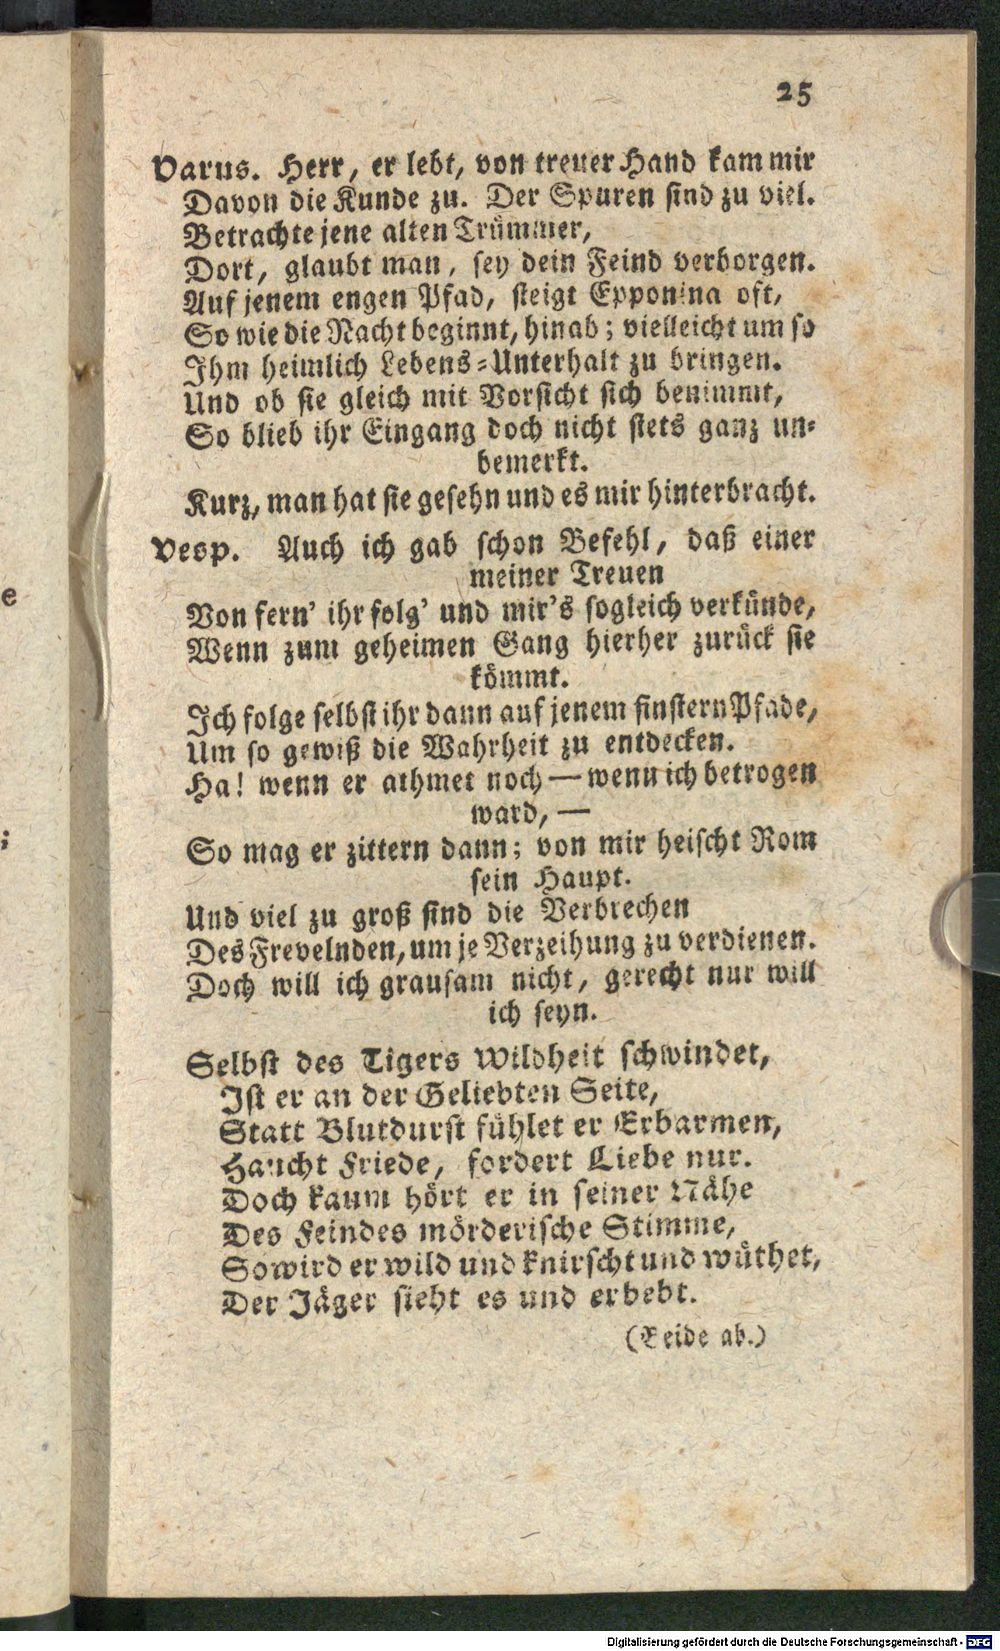 25
Varus. Herr, er lebt, von treuer Hand kam mir
Davon die Kunde zu. Der Spuren sind zu viel.
Betrachte jene alten Trümmer,
Dort, glaubt man, sey dein Feind verborgen.
Auf jenem engen Pfad, steigt Epponina oft,
So wie die Nacht beginnt, hinab; vielleicht um so
Ihm heimlich Lebens-Unterhalt zu bringen.
Und ob sie gleich mit Vorsicht sich benimmt,
So blieb ihr Eingang doch nicht stets ganz un-
bemerkt.
Kurz, man hat sie gesehn und es mir hinterbracht.
Vesp. Auch ich gab schon Befehl, daß einer
meiner Treuen
Von fern' ihr folg' und mir's sogleich verkünde,
Wenn zum geheimen Gang hierher zurück sie
kömmt.
Ich folge selbst ihr dann auf jenem finstern Pfade,
Um so gewiß die Wahrheit zu entdecken.
Ha! wenn er athmet noch — wenn ich betrogen
ward, —
So mag er zittern dann; von mir heischt Rom
sein Haupt.
Und viel zu groß sind die Verbrechen
Des Frevelnden, um je Verzeihung zu verdienen.
Doch will ich grausam nicht, gerecht nur will
ich seyn.
Selbst des Tigers Wildheit schwindet,
Ist er an der Geliebten Seite,
Statt Blutdurst fühlet er Erbarmen,
Haucht Friede, fordert Liebe nur.
Doch kaum hört er in seiner Nähe
Des Feindes mörderische Stimme,
So wird er wild und knirscht und wüthet,
Der Jäger sieht es und erbebt.
(Beide ab.)
e
;
Digitalisierung gefördert durch die Deutsche Forschungsgemeinschaft - DFG